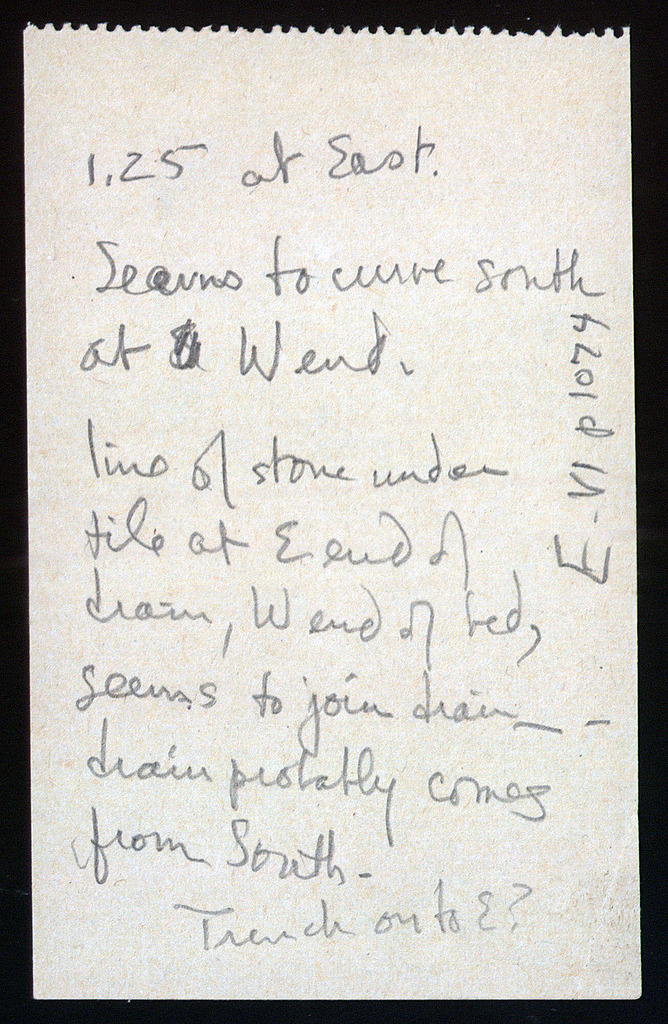 1.25 at East.
Seems to curve south
at W end.
line of stone under
tile at E end of
drain, W end of bed,
seems to join drain — –
drain probably comes
from South –
Trench on to E?
E-VI p 1074